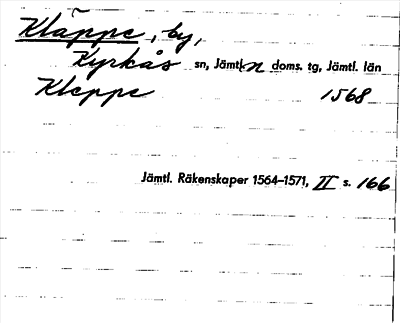 Kläppe, by,
Kyrkås sn, Jämtl. n doms. tg, Jämtl. län
Kleppe 1568
Jämtl. Räkenskaper 1564–1571, II s. 166